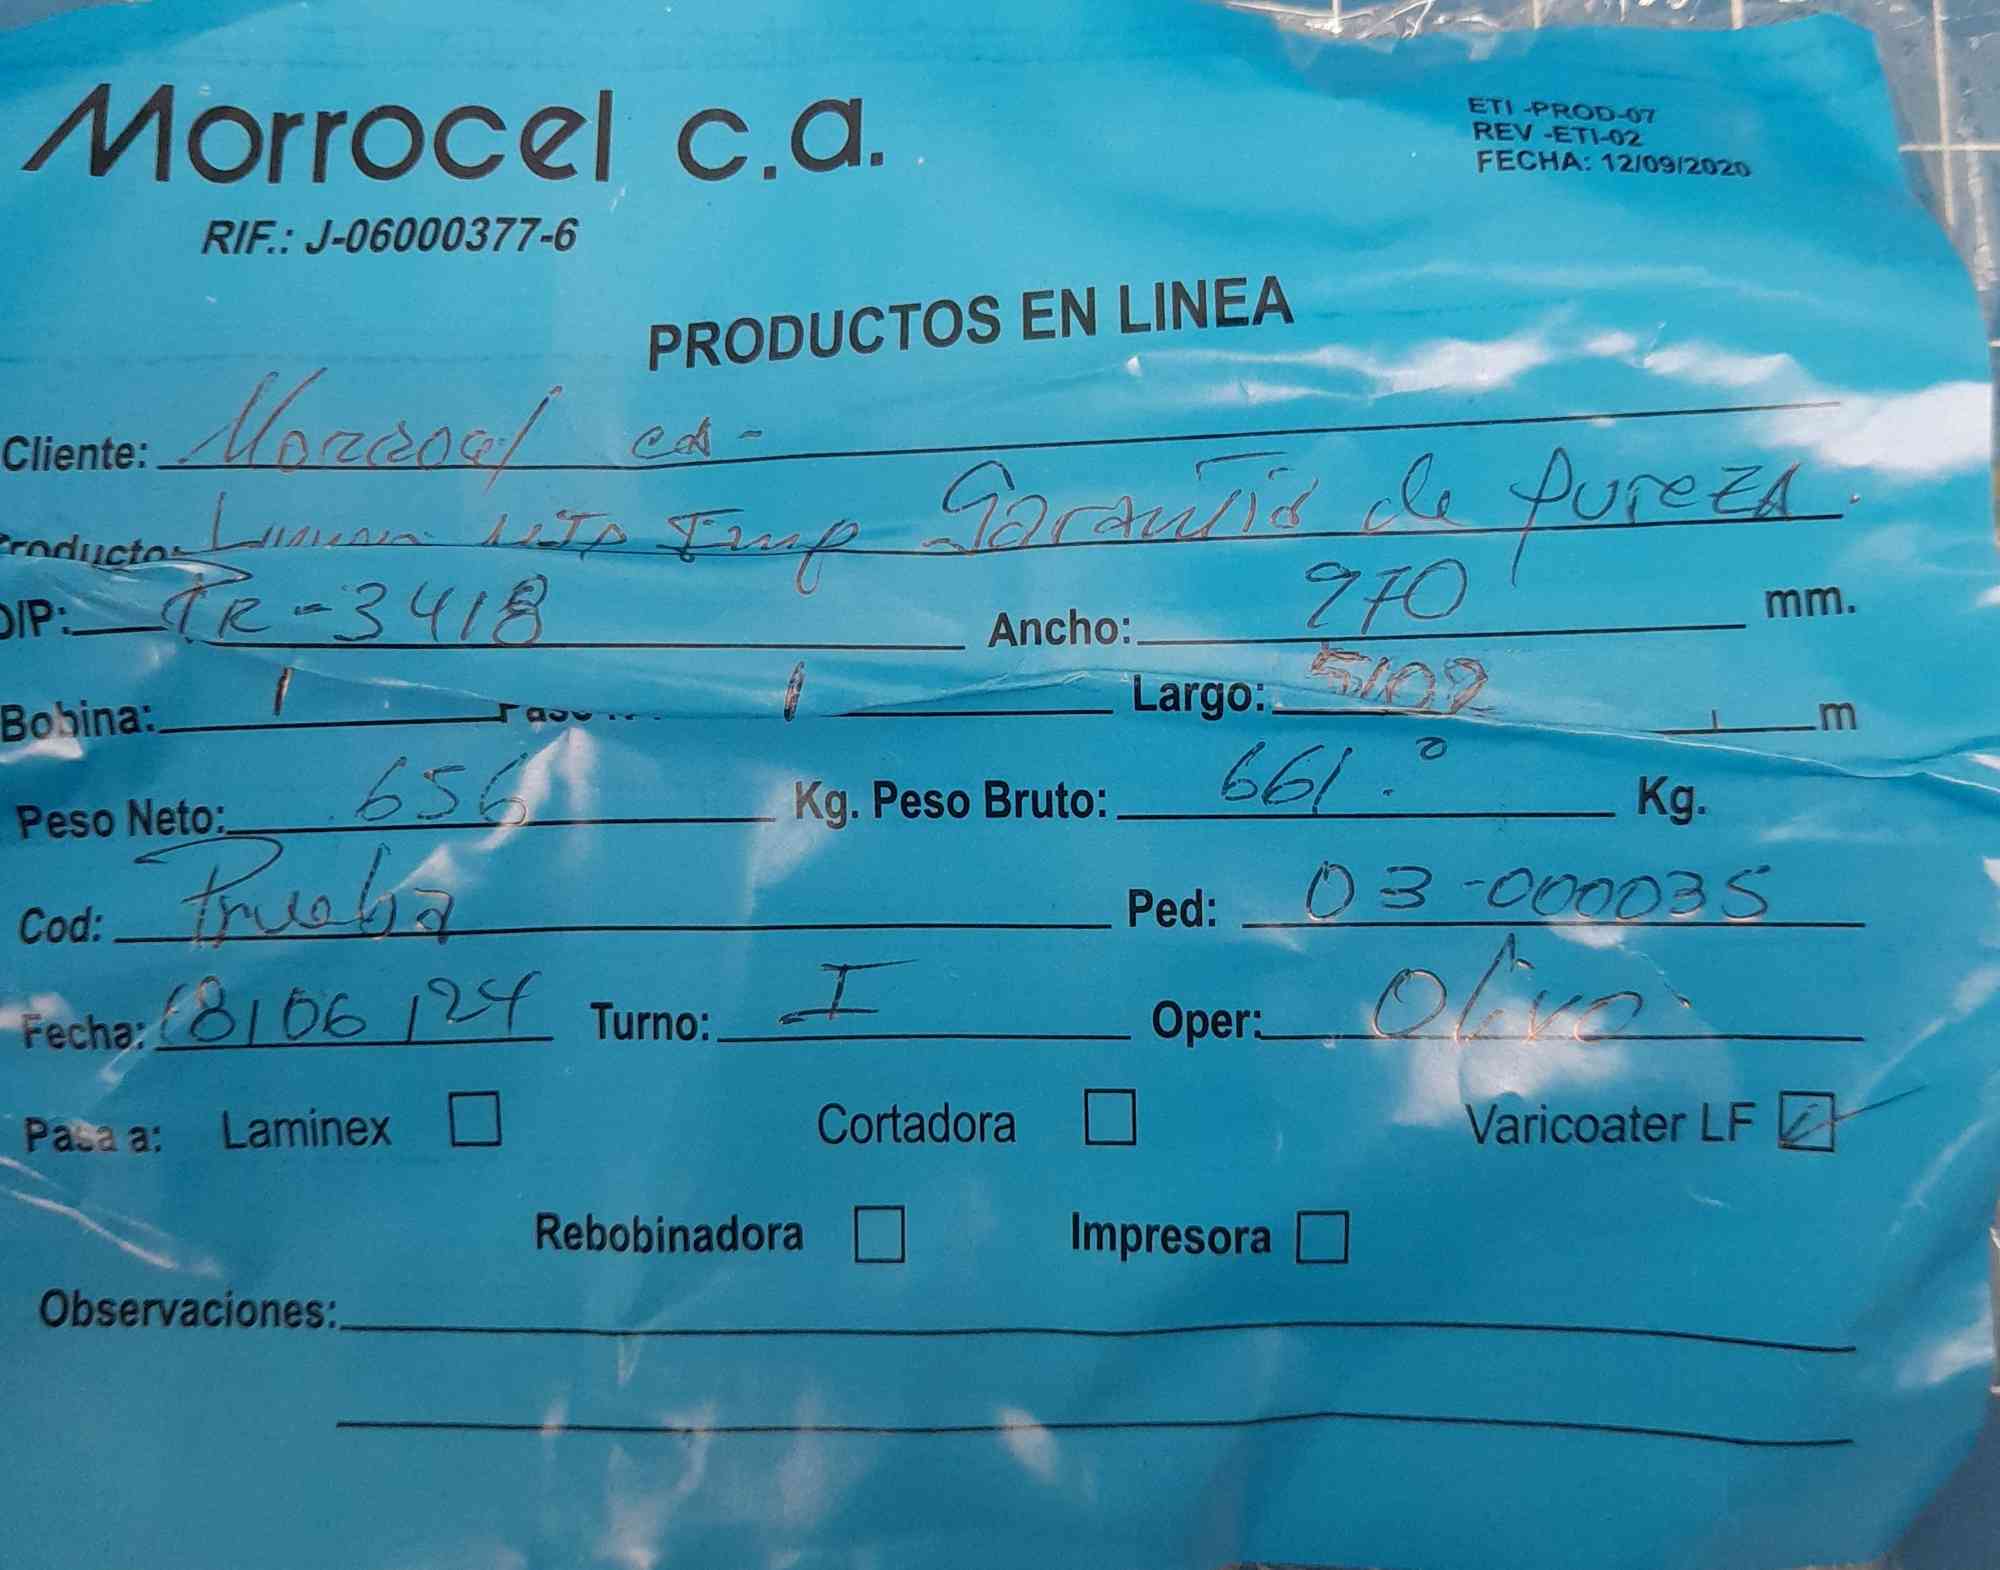 Morrocel c.a.
ETI -PROD-07
REV -ETI-02
FECHA: 12/09/2020
RIF.: J-06000377-6
PRODUCTOS EN LINEA
Cliente: Morrocel ca-
Producto: Imp Garantia de pureza.
O/P: TR-3418 Ancho: 970 mm.
Bobina: 1 1 Largo: 5102 m
Peso Neto: 656 Kg. Peso Bruto: 661.0 Kg.
Cod: Prueba Ped: 03-000035
Fecha: 18/06/24 Turno: I Oper: Olivo
Pasa a: Laminex Cortadora Varicoater LF
Rebobinadora Impresora
Observaciones: